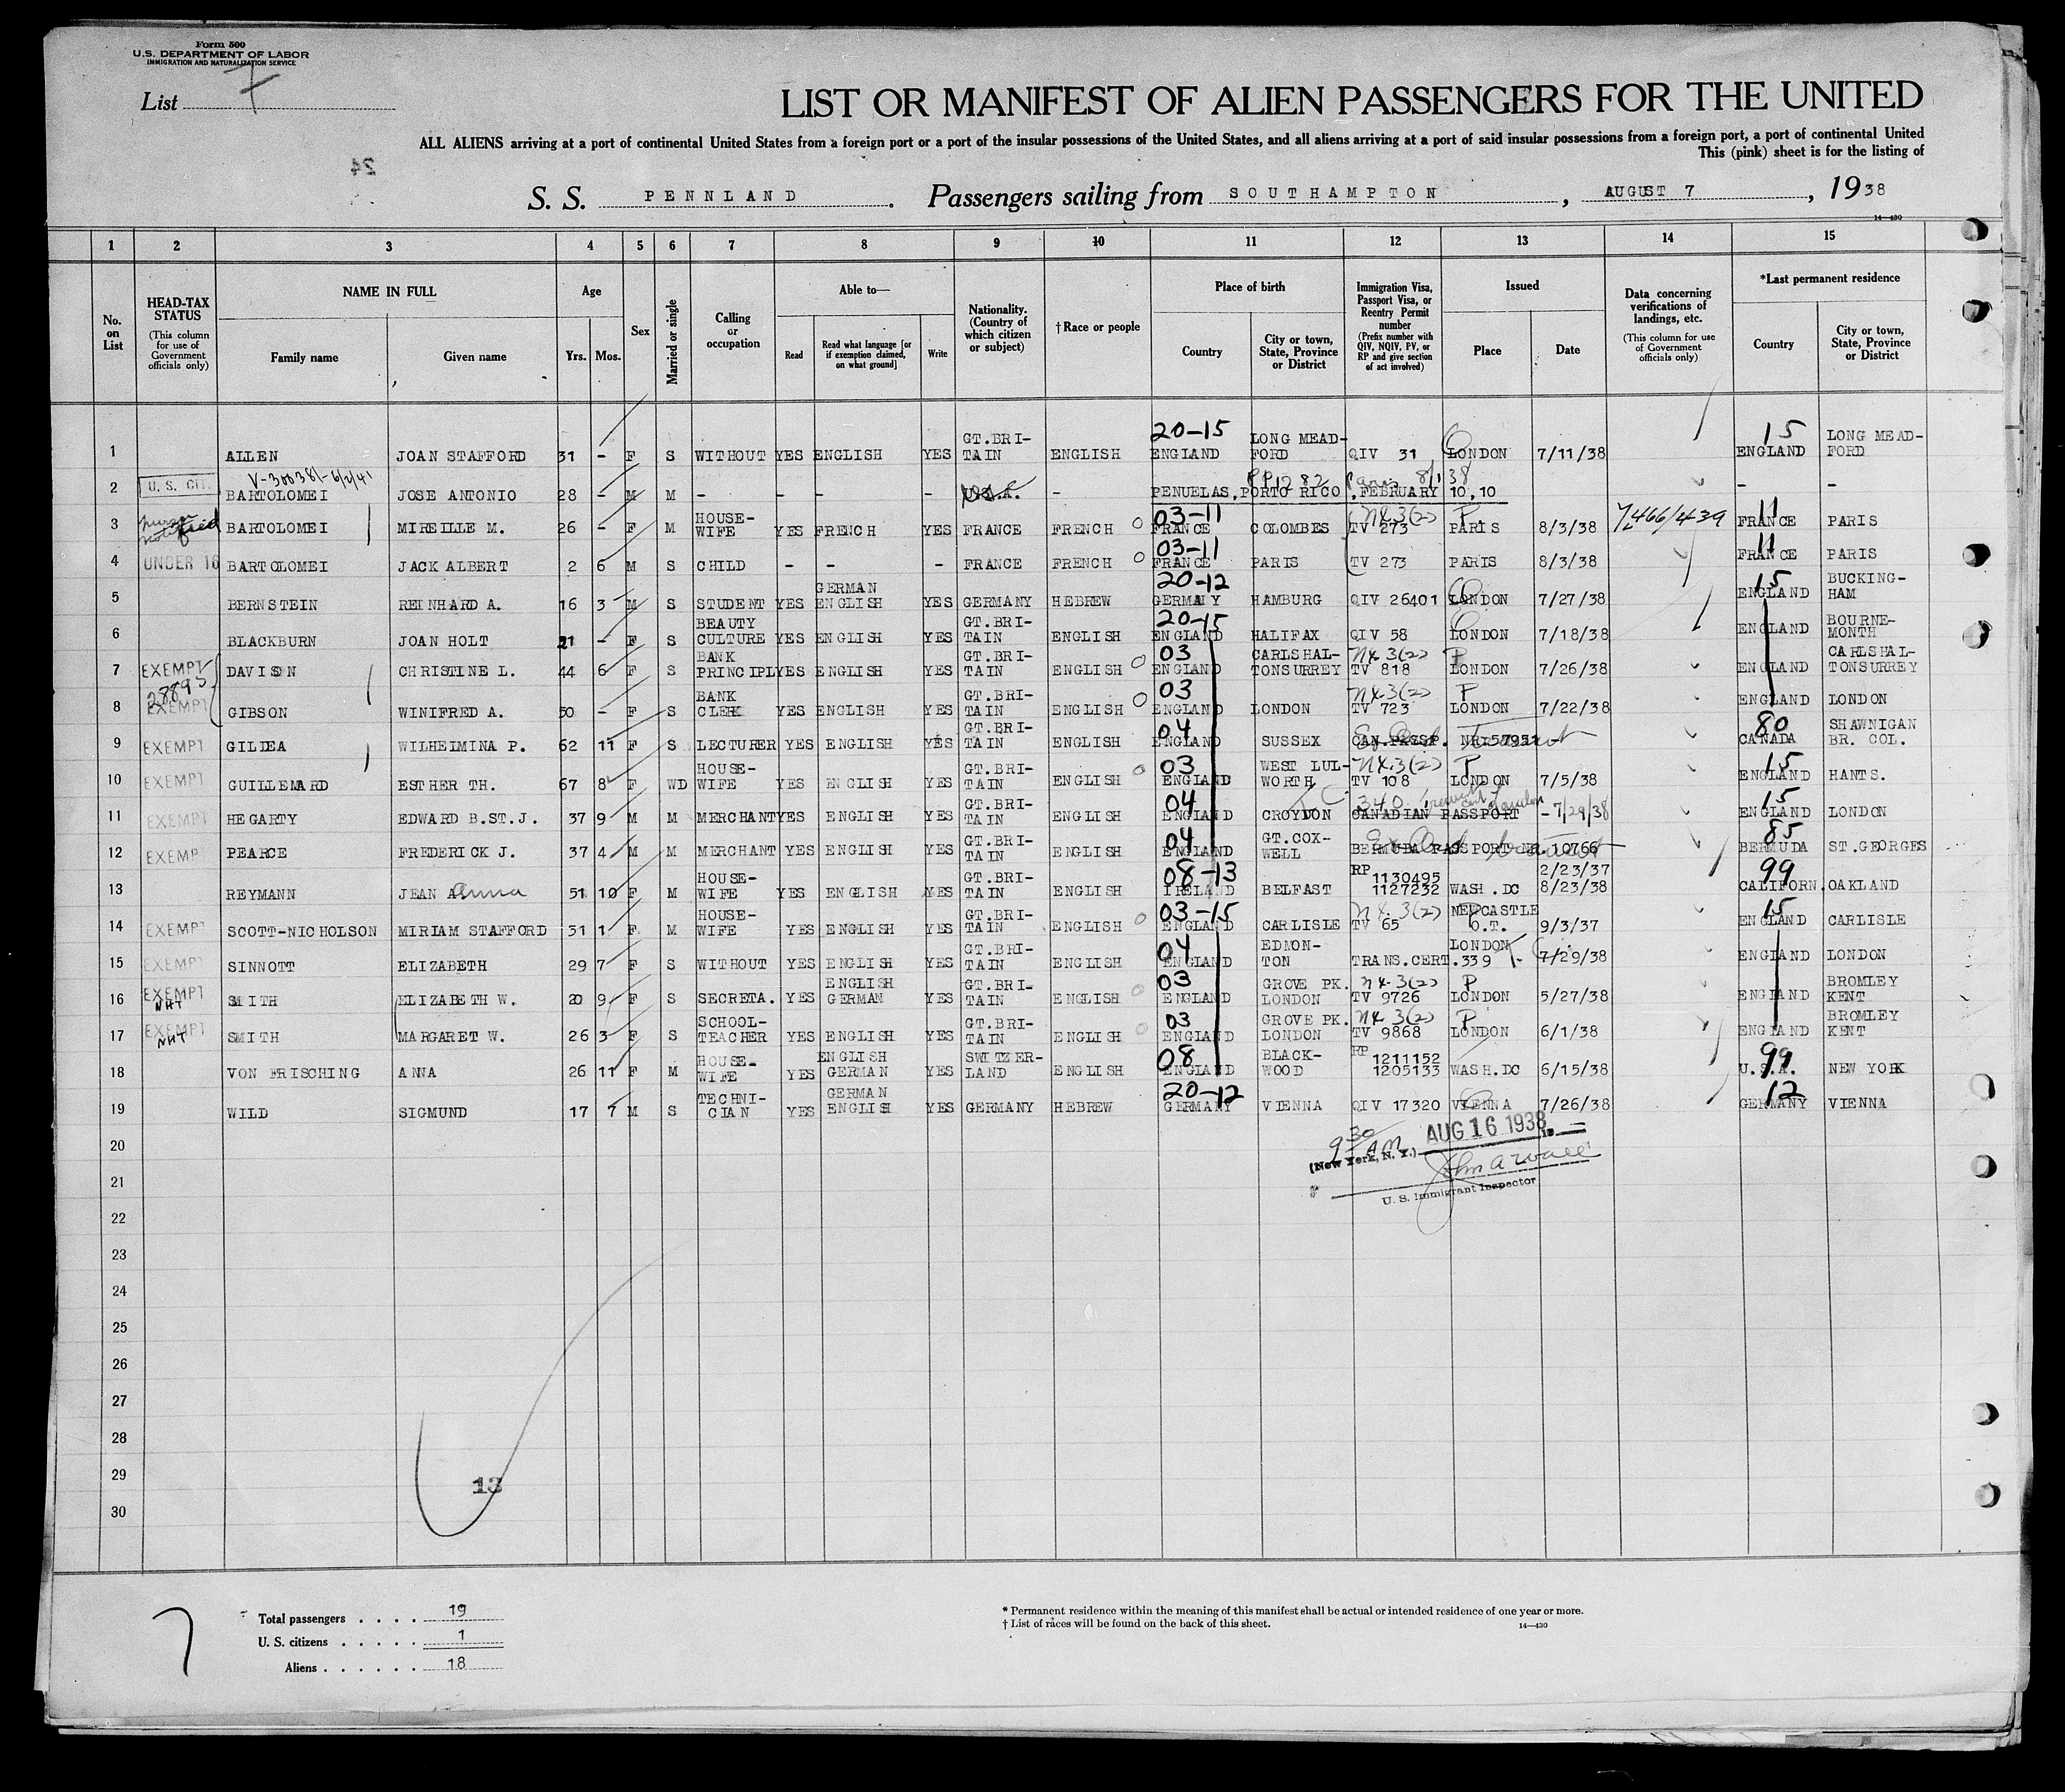 Form 500
U.S. DEPARTMENT OF LABOR
IMMIGRATION AND NATURALIZATION SERVICE
List 7
LIST OR MANIFEST OF ALIEN PASSENGERS FOR THE UNITED
ALL ALIENS arriving at a port of continental United States from a foreign port or a port of the insular possessions of the United States, and all aliens arriving at a port of said insular possessions from a foreign port, a port of continental United
This (pink) sheet is for the listing of
24
S. S. PENNLAND. Passengers sailing from SOUTHAMPTON, AUGUST 7, 1938
14—430
1 2 3 4 5 6 7 8 9 10 11 12 13 14 15
No. on List
HEAD-TAX STATUS (This column for use of Government officials only)
NAME IN FULL Family name Given name
Age Yrs. Mos.
Sex
Married or single
Calling or occupation
Able to— Read Read what language [or if exemption claimed, on what ground] Write
Nationality. (Country of which citizen or subject)
†Race or people
Place of birth Country City or town, State, Province or District
Immigration Visa, Passport Visa, or Reentry Permit number (Prefix number with QIV, NQIV, PV, or RP and give section of act involved)
Issued Place Date
Data concerning verifications of landings, etc. (This column for use of Government officials only)
*Last permanent residence Country City or town, State, Province or District
1 ALLEN JOAN STAFFORD 31 - F S WITHOUT YES ENGLISH YES GT.BRITAIN ENGLISH 20-15 ENGLAND LONG MEAD-FORD QIV 31 LONDON 7/11/38 15 ENGLAND LONG MEAD-FORD
V-30038/-6/2/41
2 U. S. CIT. BARTOLOMEI JOSE ANTONIO 28 - M M - - - U.S.A. - PENUELAS, PORTO RICO, FEBRUARY 10,10 PP1282 Paris 8/1/38 - -
3 BARTOLOMEI MIREILLE M. 26 - F M HOUSE-WIFE YES FRENCH YES FRANCE FRENCH 03-11 FRANCE COLOMBES N4.3(2) TV 273 P PARIS 8/3/38 7,466/439 11 FRANCE PARIS
4 UNDER 16 BARTOLOMEI JACK ALBERT 2 6 M S CHILD - - - FRANCE FRENCH 03-11 FRANCE PARIS TV 273 PARIS 8/3/38 11 FRANCE PARIS
5 BERNSTEIN REINHARD A. 16 3 M S STUDENT YES GERMAN ENGLISH YES GERMANY HEBREW 20-12 GERMANY HAMBURG QIV 26401 LONDON 7/27/38 15 ENGLAND BUCKING-HAM
6 BLACKBURN JOAN HOLT 21 - F S BEAUTY CULTURE YES ENGLISH YES GT.BRI-TAIN ENGLISH 20-15 ENGLAND HALIFAX QIV 58 LONDON 7/18/38 ENGLAND BOURNE-MONTH
7 EXEMPT DAVISON CHRISTINE L. 44 6 F S BANK PRINCIPL YES ENGLISH YES GT.BRI-TAIN ENGLISH 03 ENGLAND CARLSHAL-TONSURREY N4.3(2) TV 818 P LONDON 7/26/38 ENGLAND CARLSHAL-TONSURREY
28893
8 EXEMPT GIBSON WINIFRED A. 50 - F S BANK CLERK YES ENGLISH YES GT.BRI-TAIN ENGLISH 03 ENGLAND LONDON N4.3(2) TV 723 P LONDON 7/22/38 ENGLAND LONDON
9 EXEMPT GILLEA WILHELMINA P. 62 11 F S LECTURER YES ENGLISH YES GT.BRI-TAIN ENGLISH 04 ENGLAND SUSSEX CAN.PASSP. NR.57951 80 CANADA SHAWNIGAN BR. COL.
10 EXEMPT GUILLEMARD ESTHER TH. 67 8 F WD HOUSE-WIFE YES ENGLISH YES GT.BRI-TAIN ENGLISH 03 ENGLAND WEST LUL-WORTH N4.3(2) TV 108 P LONDON 7/5/38 15 ENGLAND HANTS.
11 EXEMPT HEGARTY EDWARD B.ST.J. 37 9 M M MERCHANT YES ENGLISH YES GT.BRI-TAIN ENGLISH 04 ENGLAND CROYDON T.C. 340 London CANADIAN PASSPORT - 7/29/38 15 ENGLAND LONDON
12 EXEMPT PEARCE FREDERICK J. 37 4 M M MERCHANT YES ENGLISH YES GT.BRI-TAIN ENGLISH 04 ENGLAND GT.COX-WELL BERMUDA PASSPORT NR. 10766 85 BERMUDA ST.GEORGES
13 REYMANN JEAN A. anna 51 10 F M HOUSE-WIFE YES ENGLISH YES GT.BRI-TAIN ENGLISH 08-13 IRELAND BELFAST RP 1130495 1127232 WASH.DC 2/23/37 8/23/38 99 CALIFORN. OAKLAND
14 EXEMPT SCOTT-NICHOLSON MIRIAM STAFFORD 51 1 F M HOUSE-WIFE YES ENGLISH YES GT.BRI-TAIN ENGLISH 03-15 ENGLAND CARLISLE N4.3(2) TV 65 NEWCASTLE O.T. 9/3/37 15 ENGLAND CARLISLE
15 EXEMPT SINNOTT ELIZABETH 29 7 F S WITHOUT YES ENGLISH YES GT.BRI-TAIN ENGLISH 04 ENGLAND EDMON-TON TRANS.CERT.339 LONDON 7/29/38 ENGLAND LONDON
16 EXEMPT NHT SMITH ELIZABETH W. 20 9 F S SECRETA. YES ENGLISH GERMAN YES GT.BRI-TAIN ENGLISH 03 ENGLAND GROVE PK. LONDON N4.3(2) TV 9726 P LONDON 5/27/38 ENGLAND BROMLEY KENT
17 EXEMPT NHT SMITH MARGARET W. 26 3 F S SCHOOL-TEACHER YES ENGLISH YES GT.BRI-TAIN ENGLISH 03 ENGLAND GROVE PK. LONDON N4 3(2) TV 9868 P LONDON 6/1/38 ENGLAND BROMLEY KENT
18 VON FRISCHING ANNA 26 11 F M HOUSE-WIFE YES ENGLISH GERMAN YES SWITZER-LAND ENGLISH 08 ENGLAND BLACK-WOOD RP 1211152 1205133 WASH.DC 6/15/38 99 U.S.A. NEW YORK
19 WILD SIGMUND 17 7 M S TECHNI-CIAN YES GERMAN ENGLISH YES GERMANY HEBREW 20-12 GERMANY VIENNA QIV 17320 VIENNA 7/26/38 12 GERMANY VIENNA
20
9 30 AM AUG 16 1938
(New York, N. Y.)
21
U. S. Immigrant Inspector
22
23
24
25
26
27
28
29
13
30
7
Total passengers . . . . 19
U. S. citizens . . . . . 1
Aliens . . . . . . 18
* Permanent residence within the meaning of this manifest shall be actual or intended residence of one year or more.
† List of races will be found on the back of this sheet.
14—430